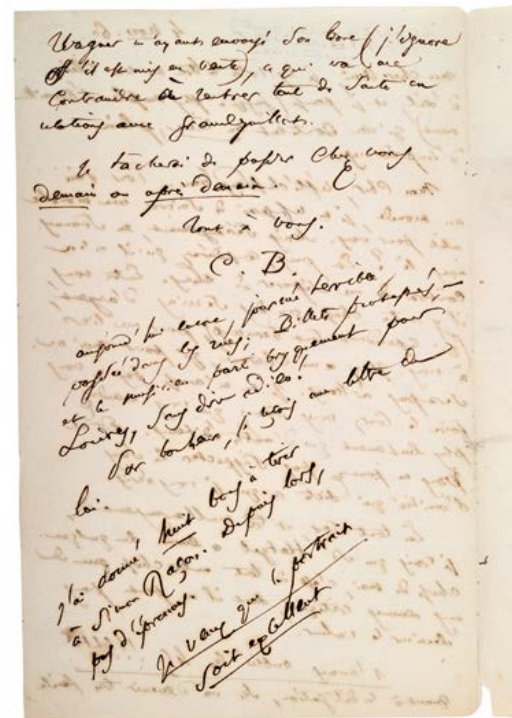 Wagner m'ayant envoyé son livre (j'ignore
s'il est mis en vente), ce qui va me
contraindre à rentrer tout de suite en
relations avec Grandguillot.
Je tâcherai de passer chez vous
demain ou après demain.
Tout à vous.
C. B.
aujourd'hui encore, journée terrible,
passée dans les rues; Billets protestés, —
et le musicien parti brusquement pour
Londres, sans dire adieu.
Par bonheur, j'avais une lettre de
lui.
J'ai donné huit bons à tirer
à Simon Raçon. Depuis lors,
pas d'épreuves.
Je veux que le portrait
soit excellent